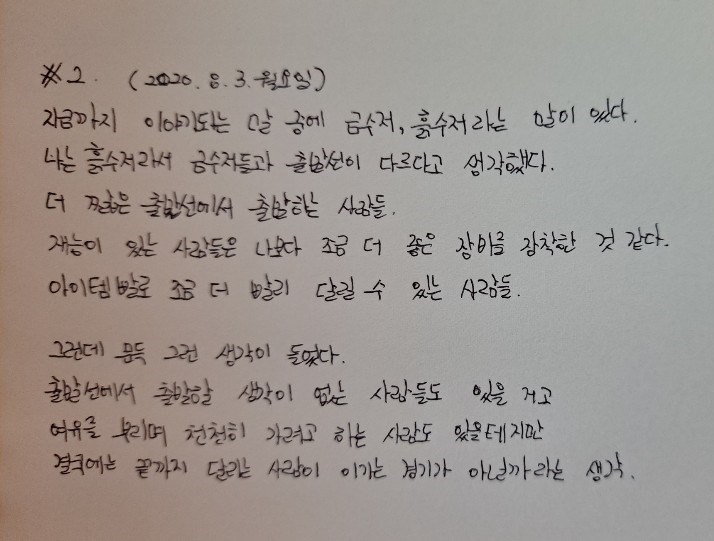 #2. (2020. 8. 3. 월요일)
지금까지 이야기되는 말 중에 금수저, 흙수저라는 말이 있다.
나는 흙수저라서 금수저들과 출발선이 다르다고 생각했다.
더 짧은 출발선에서 출발하는 사람들.
재능이 있는 사람들은 나보다 조금 더 좋은 장비를 장착한 것 같다.
아이템빨로 조금 더 빨리 달릴 수 있는 사람들.
그런데 문득 그런 생각이 들었다.
출발선에서 출발할 생각이 없는 사람들도 있을 거고
여유를 부리며 천천히 가려고 하는 사람도 있을테지만
결국에는 끝까지 달리는 사람이 이기는 경기가 아닐까라는 생각.